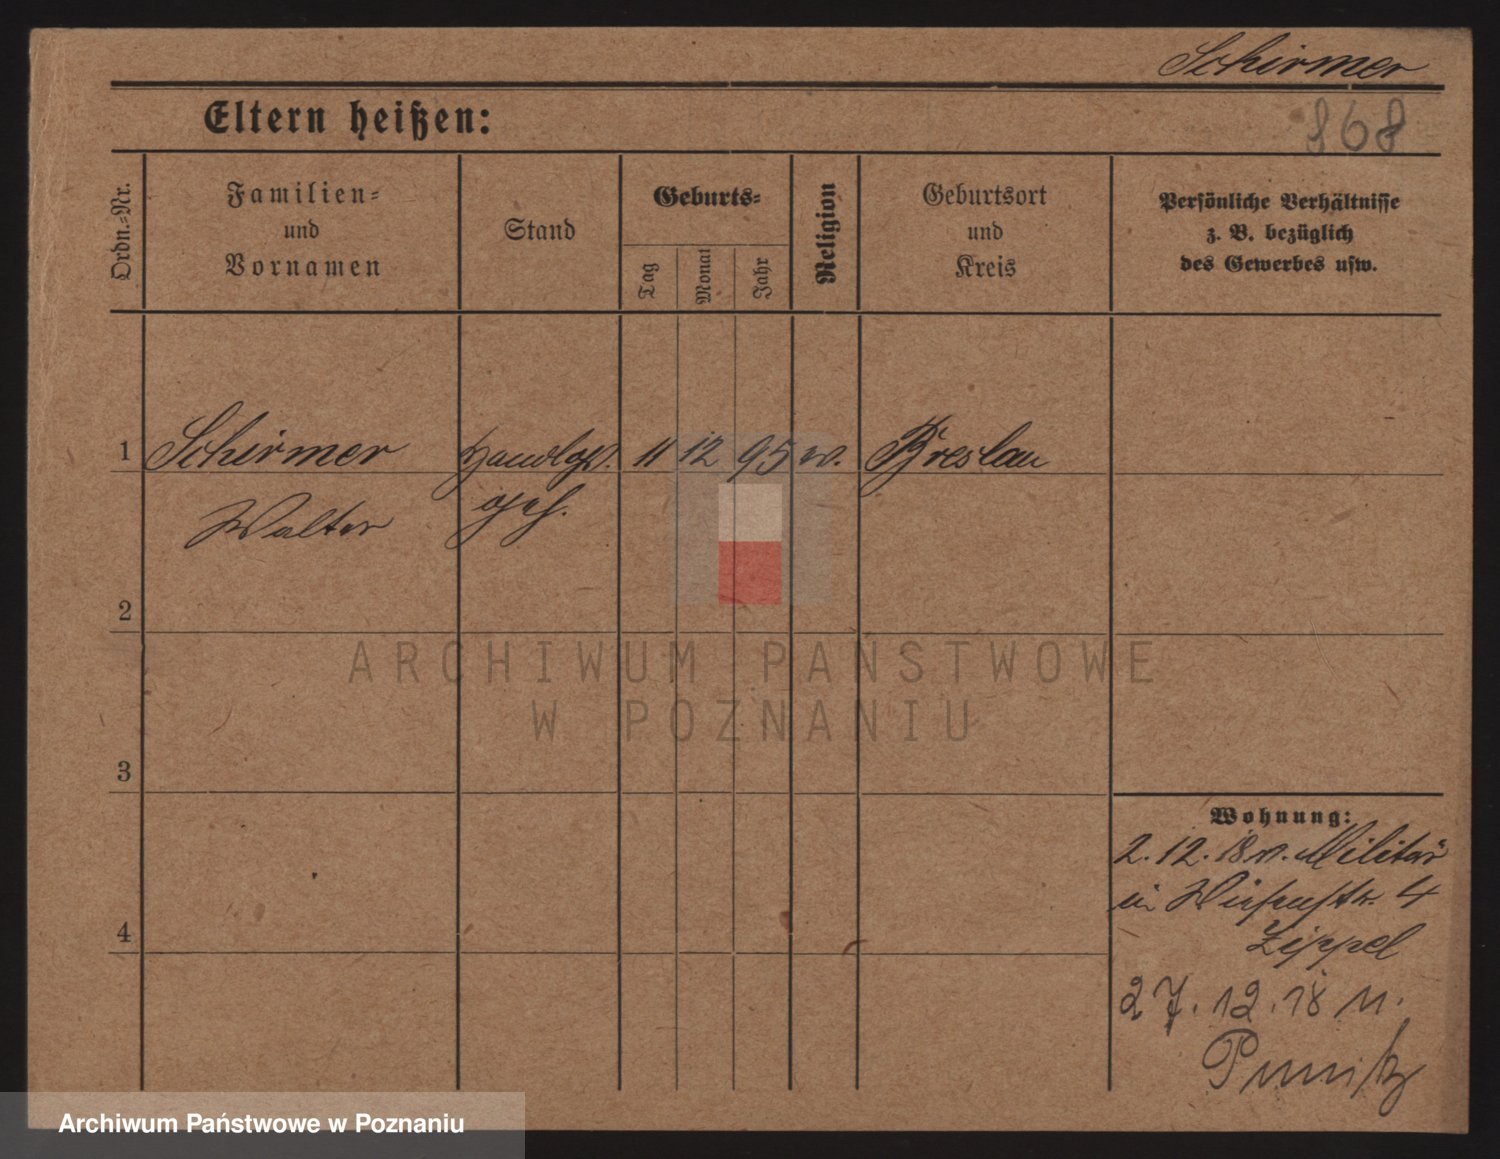 Schirmer
Eltern heißen:
868
Ordn.-Nr.
Familien-
und
Vornamen
Stand
Geburts-
Tag
Monat
Jahr
Religion
Geburtsort
und
Kreis
Persönliche Verhältnisse
z. B. bezüglich
des Gewerbes usw.
1
Schirmer
Handlgs.
11
12
95
ev.
Breslau
Walter
geh.
2
ARCHIWUM PAŃSTWOWE
W POZNANIU
3
Wohnung:
2.12.18 v. Militär
in 4
4
Zippel
27.12.18 n.